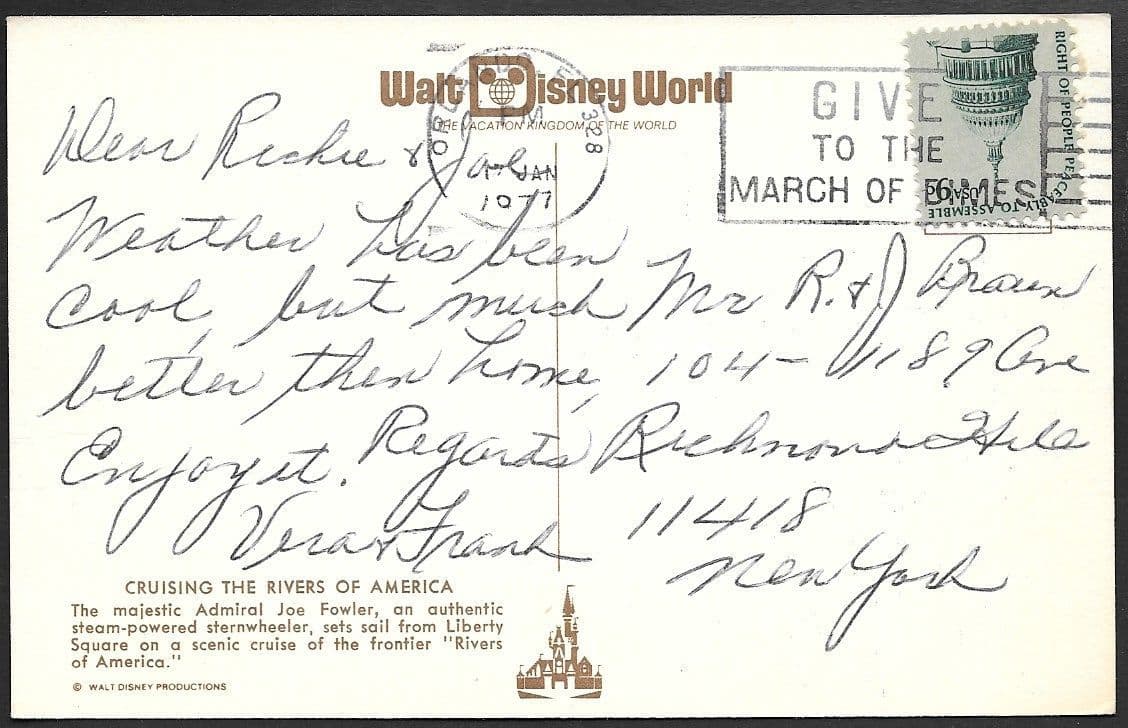 Walt Disney World
THE VACATION KINGDOM OF THE WORLD
ORLANDO, FL 328
PM
17 JAN
1977
GIVE
TO THE
MARCH OF DIMES
RIGHT OF PEOPLE PEACEABLY TO ASSEMBLE
USA 9c
Dear Richie & Joh
Weather has been
cool, but much
better then home,
Enjoy it. Regards
Vera & Frank
Mr R. & J Braun
104- 11189 Ave
Richmond Hill
11418
New York
CRUISING THE RIVERS OF AMERICA
The majestic Admiral Joe Fowler, an authentic
steam-powered sternwheeler, sets sail from Liberty
Square on a scenic cruise of the frontier "Rivers
of America."
© WALT DISNEY PRODUCTIONS